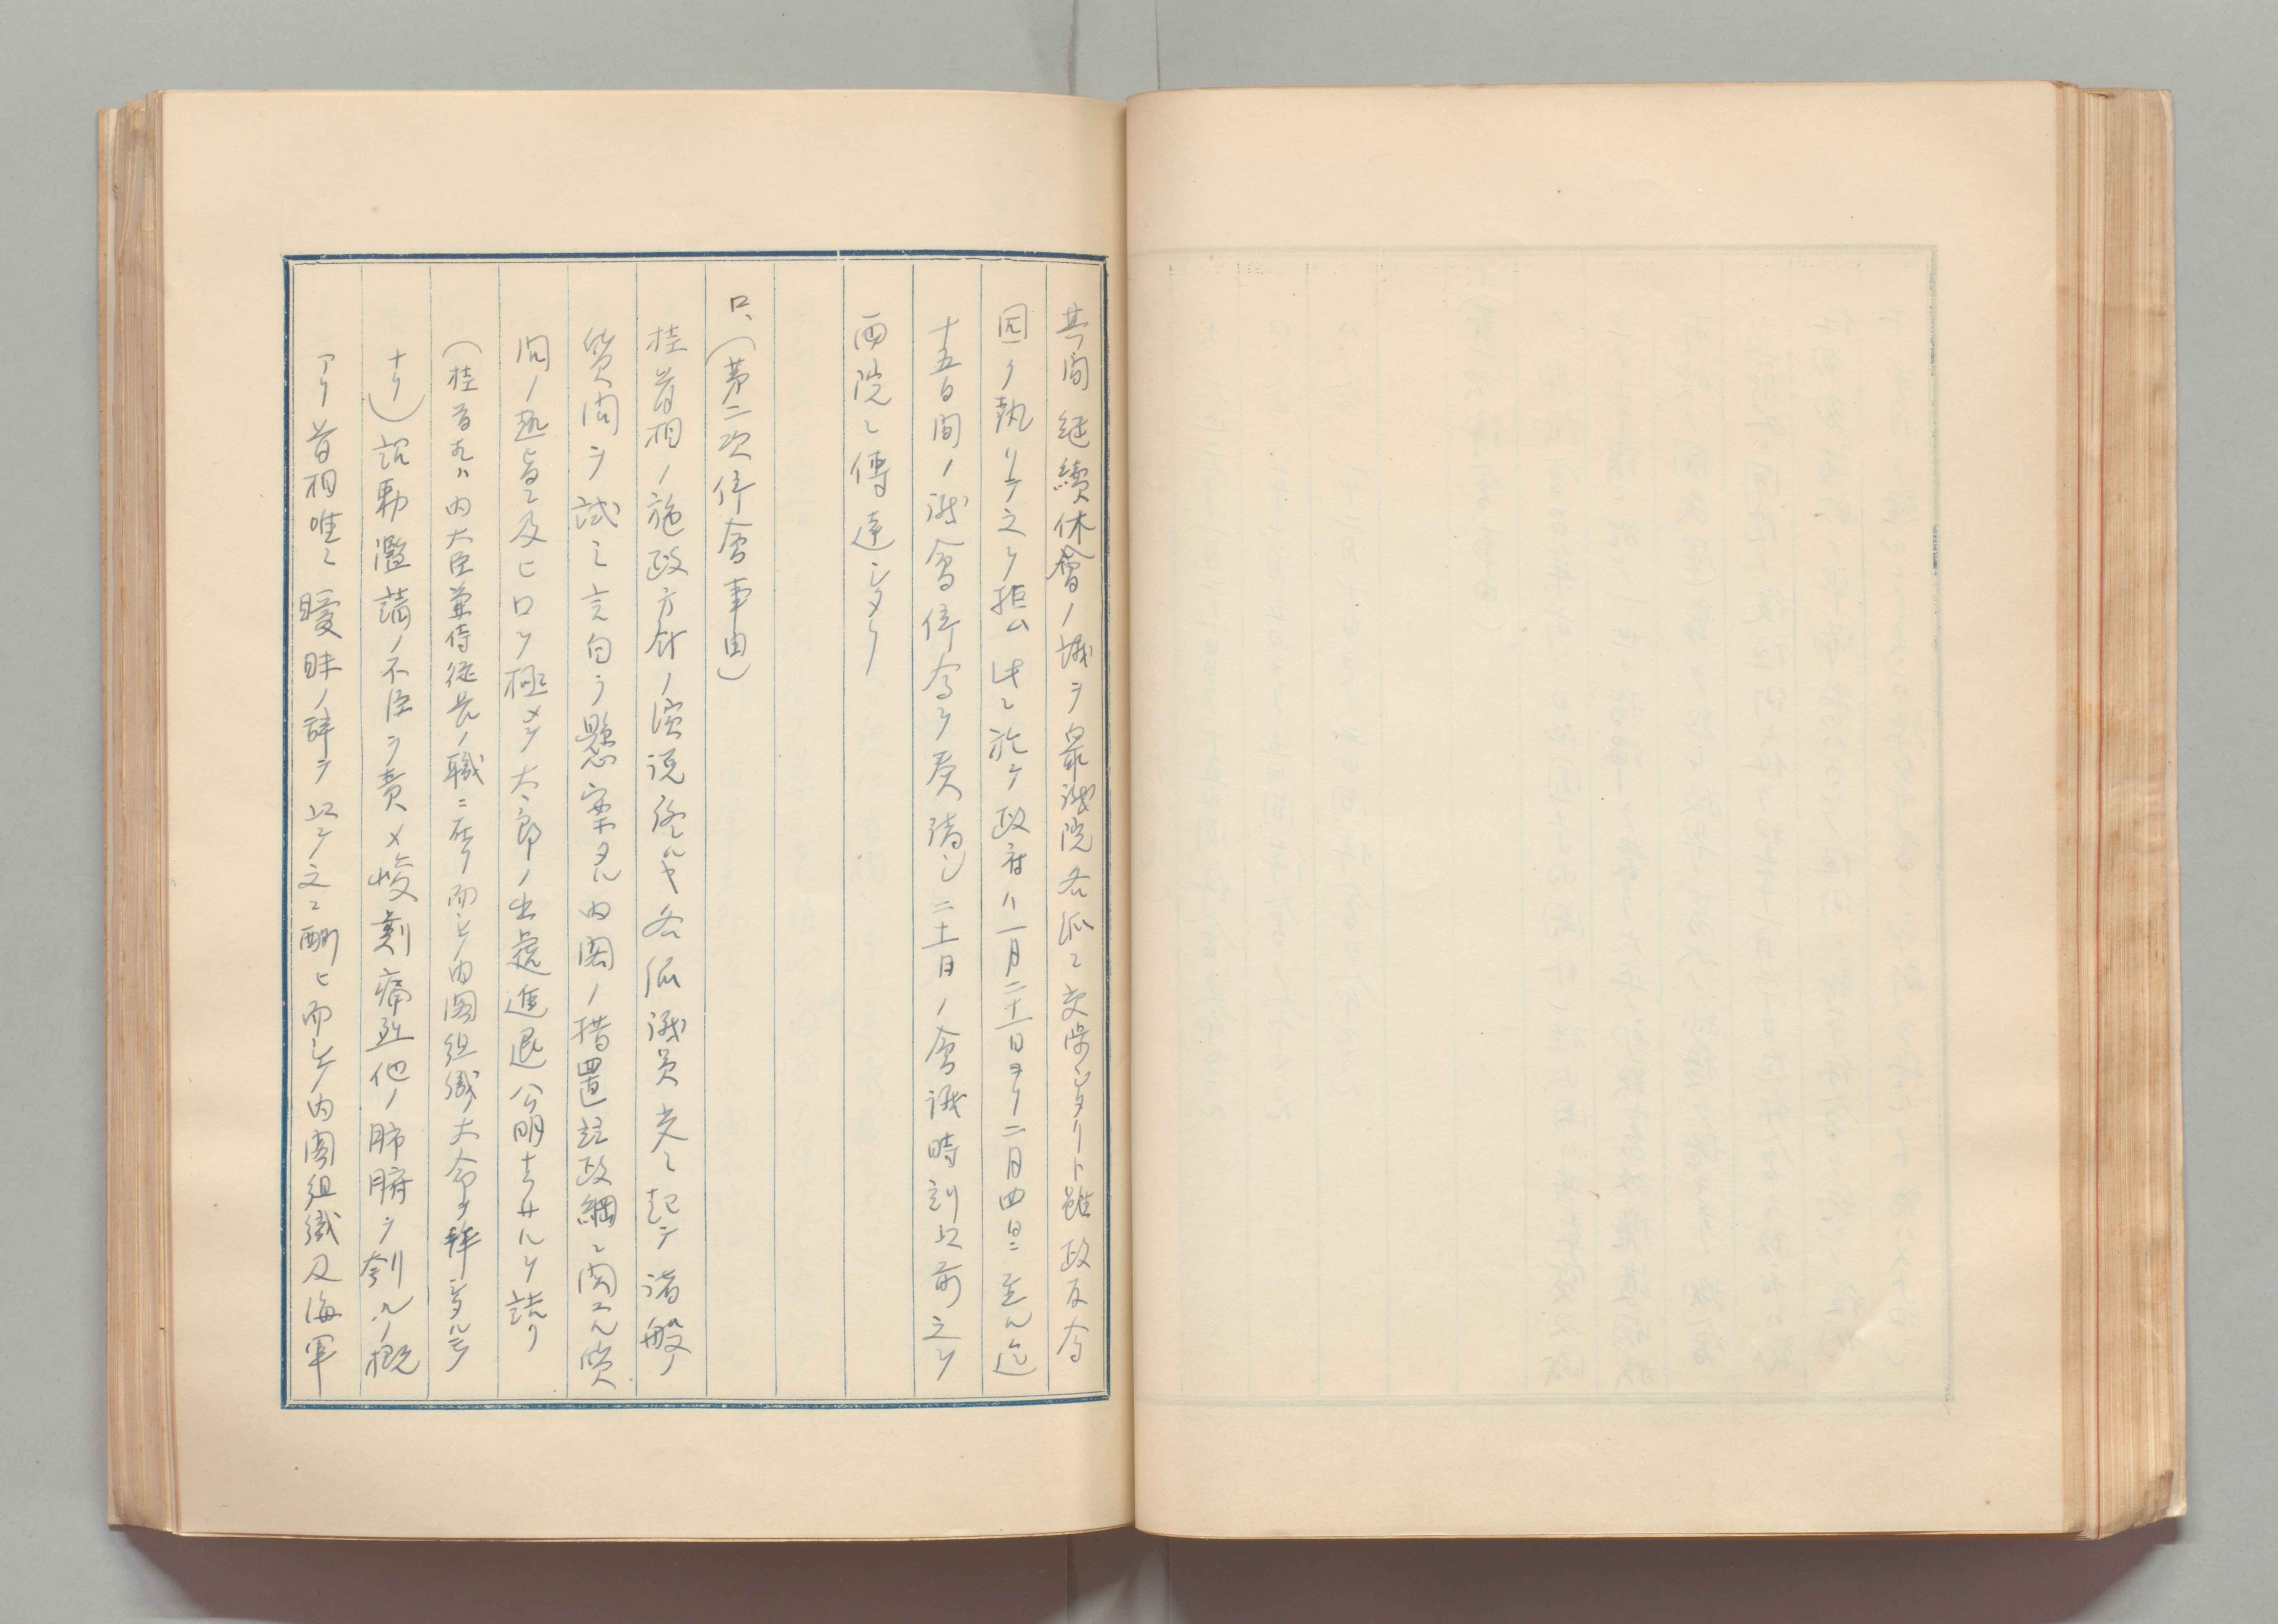 其間継續休會ノ議ヲ衆議院各派ニ交渉シタリト雖政友會
固ク執リテ之ヲ拒ム此ニ於テ政府ハ一月二十一日ヨリ二月四日ニ至ル迄
十五日間ノ議會停會ヲ奏請シ二十一日ノ會議時刻以前之ヲ
両院ニ傳達シタリ
ロ、(第二次停會事由)
桂首相ノ施政方針ノ演説終ルヤ各派議員交々起テ諸般ノ
質問ヲ試ミ言句ヲ懸案タル内閣ノ措置註政綱ニ関スル質
問ノ趣旨ニ及ヒ口ヲ極メテ太郎ノ出處進退公明ナラサルヲ詰リ
(桂首相ハ内大臣兼侍従長ノ職ニ在リ而シテ内閣組織ノ大命ヲ拝シタルモノ
ナリ)詔勅濫請ノ不臣ヲ責メ峻刻痛烈他ノ肺腑ヲ刳ルノ概
アリ首相唯々曖昧ノ辞ヲ以テ之ニ酬ヒ而シテ内閣組織及海軍